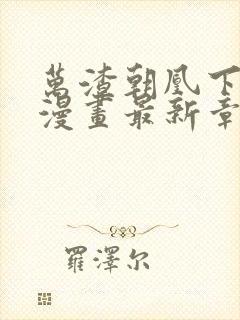 萬渣朝凰下
漫畫最新章
羅澤尔